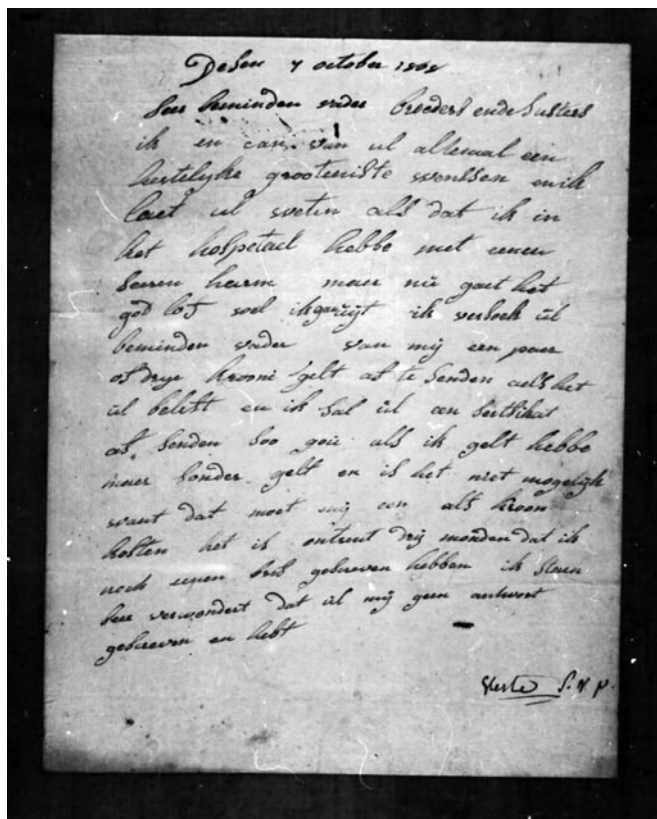 Desen 7 october 1808
seer beminden vader broeders ende susters
ik en can van ul allemal een
hertelyke grooteniste wenssen en ik
laet ul weten als dat ik in
het hospetael hebbe met eenen
seeren harm maer nu gaet het
god lof wel ik ul
beminden vader van mij een paer
of drye kroone gelt af te senden aels het
ul belift en ik sal ul een sertifikat
af senden soo gou als ik gelt hebbe
maer sonder gelt en is het niet mogelijk
want dat moet mij een als kroon
kosten het is ontrent drij monden dat ik
noch eenen brif geschreven hebben ik staen
seer verwondert dat ul mij geen antwort
geschreven en hebt